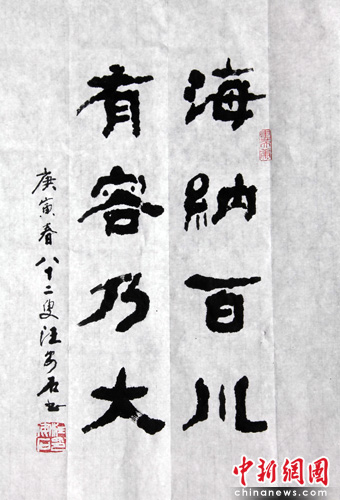 海納百川
有容乃大
庚寅春八十二叟汪安石书
中新網圖
chinanews.com